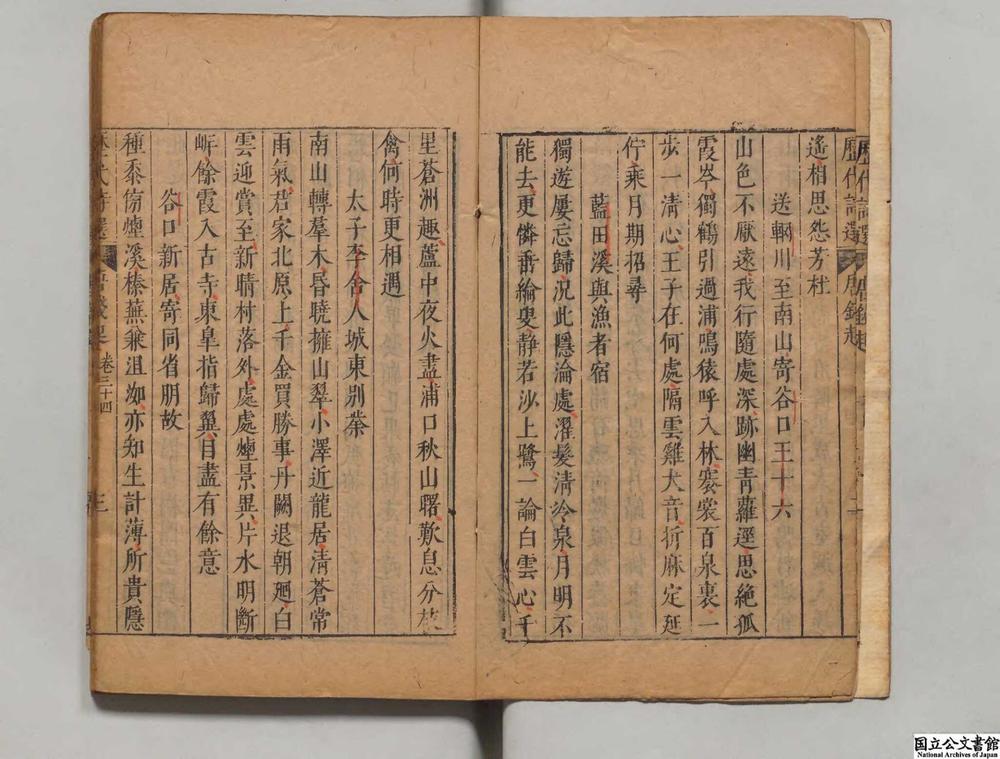 遙相思怨芳杜
送輞川至南山寄谷口王十六
山色不厭遠我行隨處深跡幽青蘿逕思絶孤
霞岑獨鶴引過浦鳴猿呼入林褰裳百泉裏一
步一清心王子在何處隔雲雞犬音折麻定延
佇乘月期招尋
藍田溪與漁者宿
獨遊屢忘歸況此隱淪處濯髮清泠泉月明不
能去更憐垂綸叟靜若沙上鷺一論白雲心千
里蒼洲趣蘆中夜火盡浦口秋山曙歎息分枝
禽何時更相遇
太子李舍人城東別業
南山轉羣木昏曉擁山翠小澤近龍居清蒼常
雨氣君家北原上千金買勝事丹闕退朝廻白
雲迎賞至新晴村落外處處煙景異片水明斷
岸餘霞入古寺東臯指歸翼目盡有餘意
谷口新居寄同省朋故
種黍傍煙溪榛蕪兼沮洳亦知生計薄所貴隱
卷三十四
三
国立公文書館
National Archives of Japan